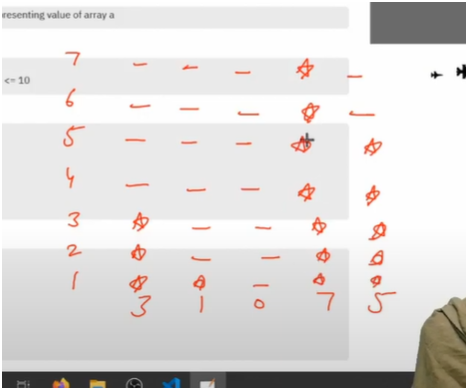 resenting value of array a
7 - - - ☆ -
<= 10
6 - - - ☆ -
5 - - - ☆ ☆
4 - - - ☆ ☆
3 ☆ - - ☆ ☆
2 ☆ - - ☆ ☆
1 ☆ ☆ - ☆ ☆
3 1 0 7 5